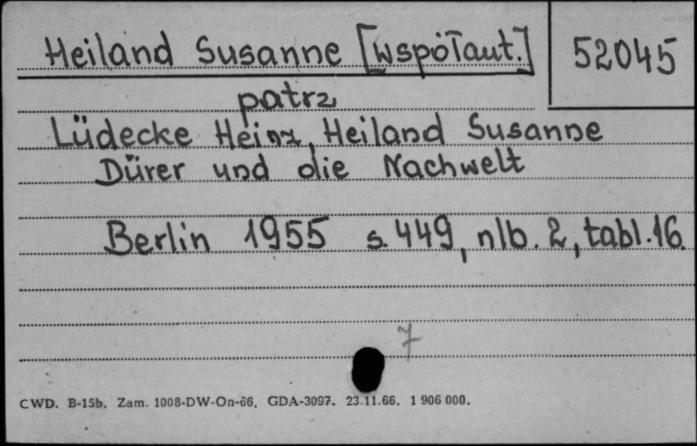 Heiland Susanne [współaut.]
52045
patrz
Lüdecke Heinz, Heiland Susanne
Dürer und die Nachwelt
Berlin 1955 s. 449, nlb. 2, tabl. 16
7
CWD. B-15b. Zam. 1008-DW-On-66. GDA-3097. 23.11.66. 1 906 000.